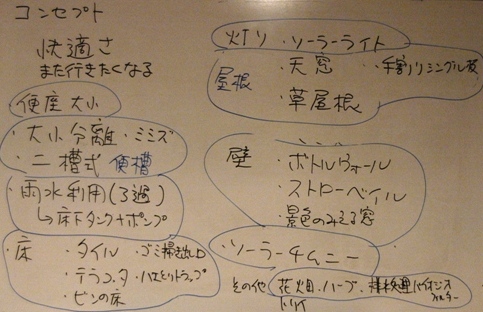 コンセプト
快適さ
また行きたくなる
・便座大小
・大小分離・ミミズ
・二槽式 便槽
・雨水利用(ろ過)
↳床下タンク+ポンプ
・床 ・タイル ・ゴミ掃き出し口
・テラコッタ ・ハエとりトラップ
・ビンの床
灯り ・ソーラーライト
屋根 ・天窓 ・手割りシングル板
・草屋根
壁 ・ボトルウォール
・ストローベイル
・景色のみえる窓
・ソーラーチムニー
その他 花畑・ハーブ、